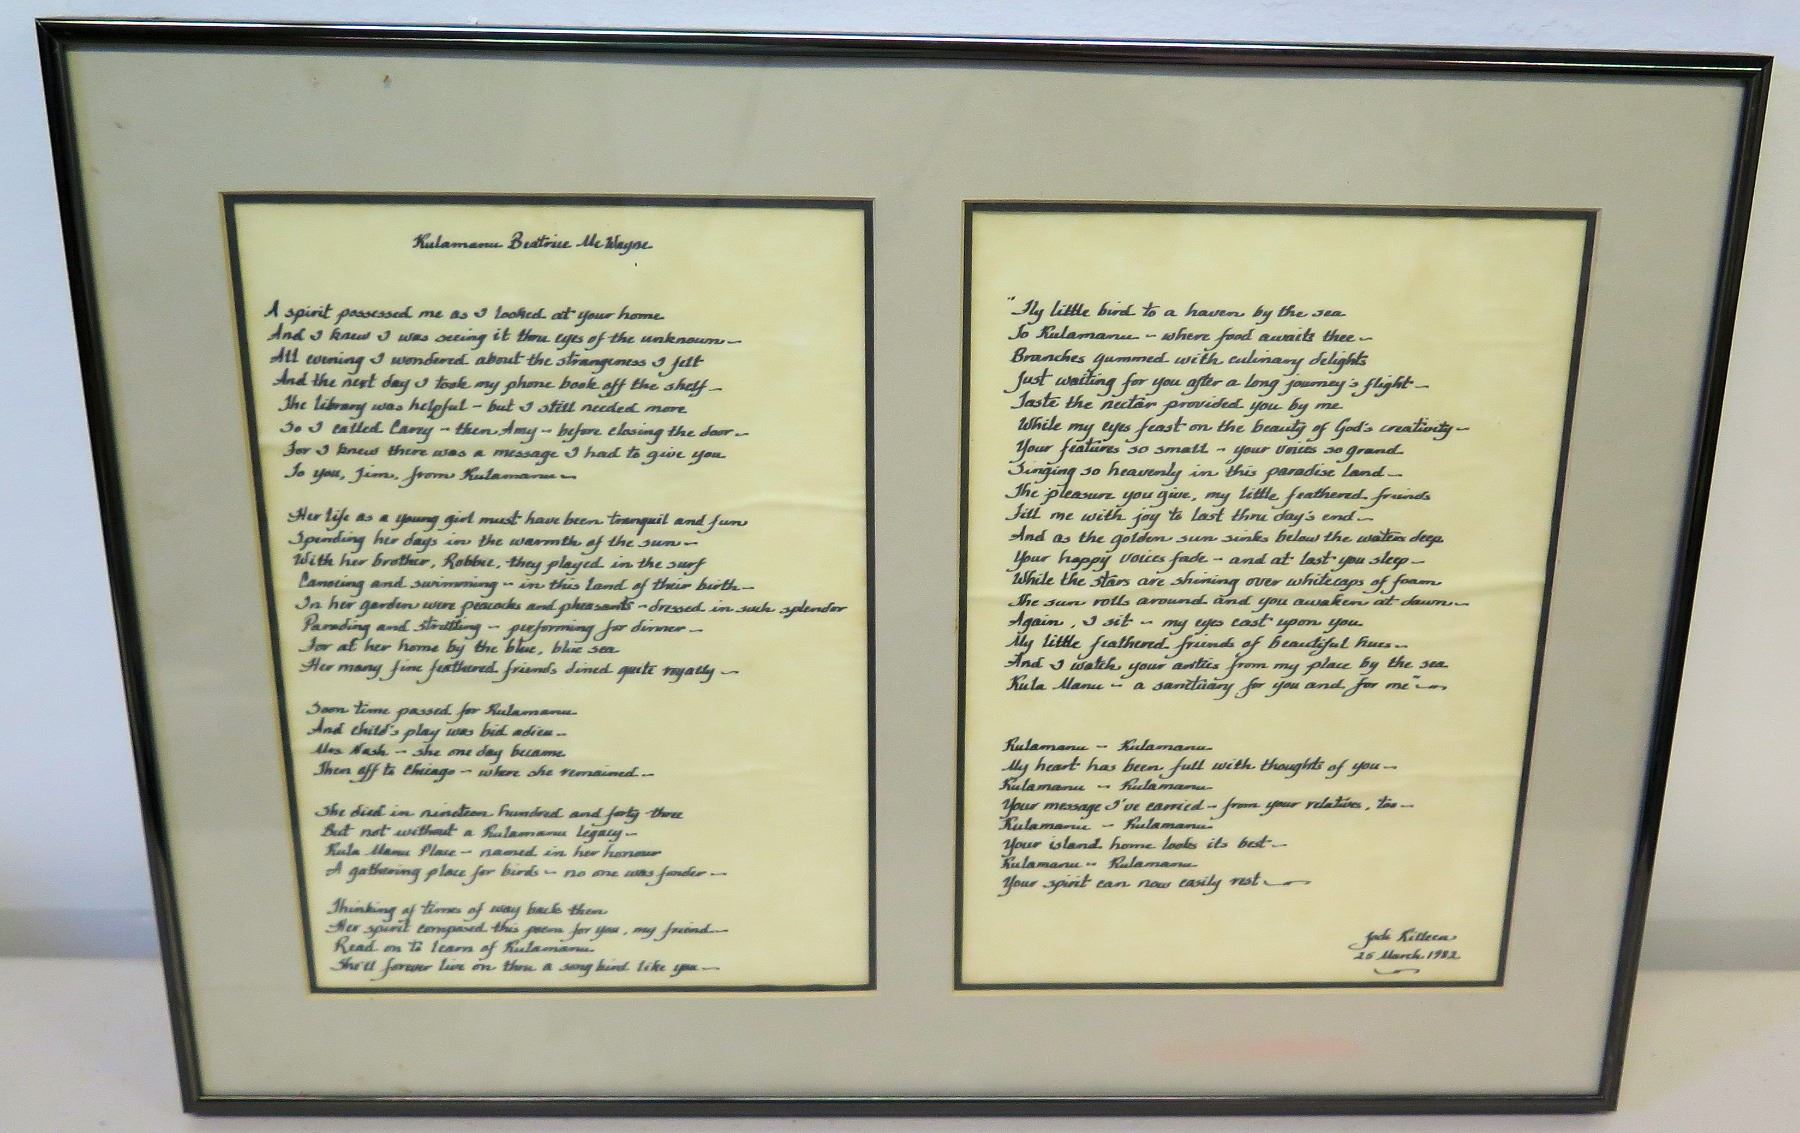 Kulamanu Beatrice McWayne
A spirit possessed me as I looked at your home
And I knew I was seeing it thru eyes of the unknown –
All evening I wondered about the strangeness I felt
And the next day I took my phone book off the shelf –
The library was helpful – but I still needed more
So I called Carey – then Amy – before closing the door –
For I knew there was a message I had to give you
To you, Jim, from Kulamanu –
Her life as a young girl must have been tranquil and fun
Spending her days in the warmth of the sun –
With her brother, Robbie, they played in the surf
Canoeing and swimming – in this land of their birth –
In her garden were peacocks and pheasants – dressed in such splendor
Parading and strutting – performing for dinner –
For at her home by the blue, blue sea
Her many fine feathered friends dined quite royally –
Soon time passed for Kulamanu
And child's play was bid adieu –
Mrs Nash – she one day became
Then off to Chicago – where she remained –
She died in nineteen hundred and forty-three
But not without a Kulamanu legacy –
Kula Manu Place – named in her honour
A gathering place for birds – no one was fonder –
Thinking of times of way back then
Her spirit composed this poem for you, my friend –
Read on to learn of Kulamanu
She'll forever live on thru a song bird like you –
"Fly little bird to a haven by the sea
To Kulamanu – where food awaits thee –
Branches gummed with culinary delights
Just waiting for you after a long journey's flight –
Taste the nectar provided you by me
While my eyes feast on the beauty of God's creativity –
Your features so small – your voices so grand
Singing so heavenly in this paradise land –
The pleasure you give, my little feathered friends
Fill me with joy to last thru day's end –
And as the golden sun sinks below the waters deep
Your happy voices fade – and at last you sleep –
While the stars are shining over whitecaps of foam
The sun rolls around and you awaken at dawn –
Again, I sit – my eyes cast upon you
My little feathered friends of beautiful hues –
And I watch your antics from my place by the sea
Kula Manu – a sanctuary for you and for me" –
Kulamanu – Kulamanu
My heart has been full with thoughts of you –
Kulamanu – Kulamanu
Your message I've carried – from your relatives, too –
Kulamanu – Kulamanu
Your island home looks its best –
Kulamanu – Kulamanu
Your spirit can now easily rest –
25 March 1982